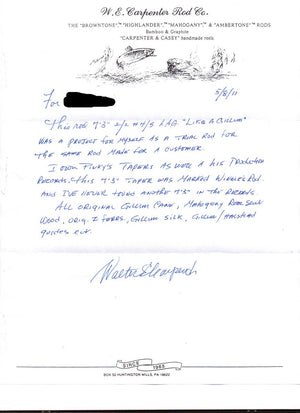 W.E. Carpenter Rod Co.
THE "BROWNTONE", "HIGHLANDER", "MAHOGANY", & "AMBERTONE" RODS
Bamboo & Graphite
"CARPENTER & CASEY" handmade rods
5/8/11
For
This rod 7'3" 2/2 4/5 "Like A Gillum"
was a project for myself as a trial rod for
the same rod made for a customer.
I own Pinky's tapers as well a his production
records. This 7'3" taper was marked Wiener's Rod.
and I've never found another 7'3" in the records.
All original Gillum cane, Mahogany Reel Seat
wood, orig. ferrs, Gillum silk, Gillum/Halstead
guides etc.
Walter E Carpenter
SINCE 1965
BOX 52 HUNTINGTON MILLS, PA 18622